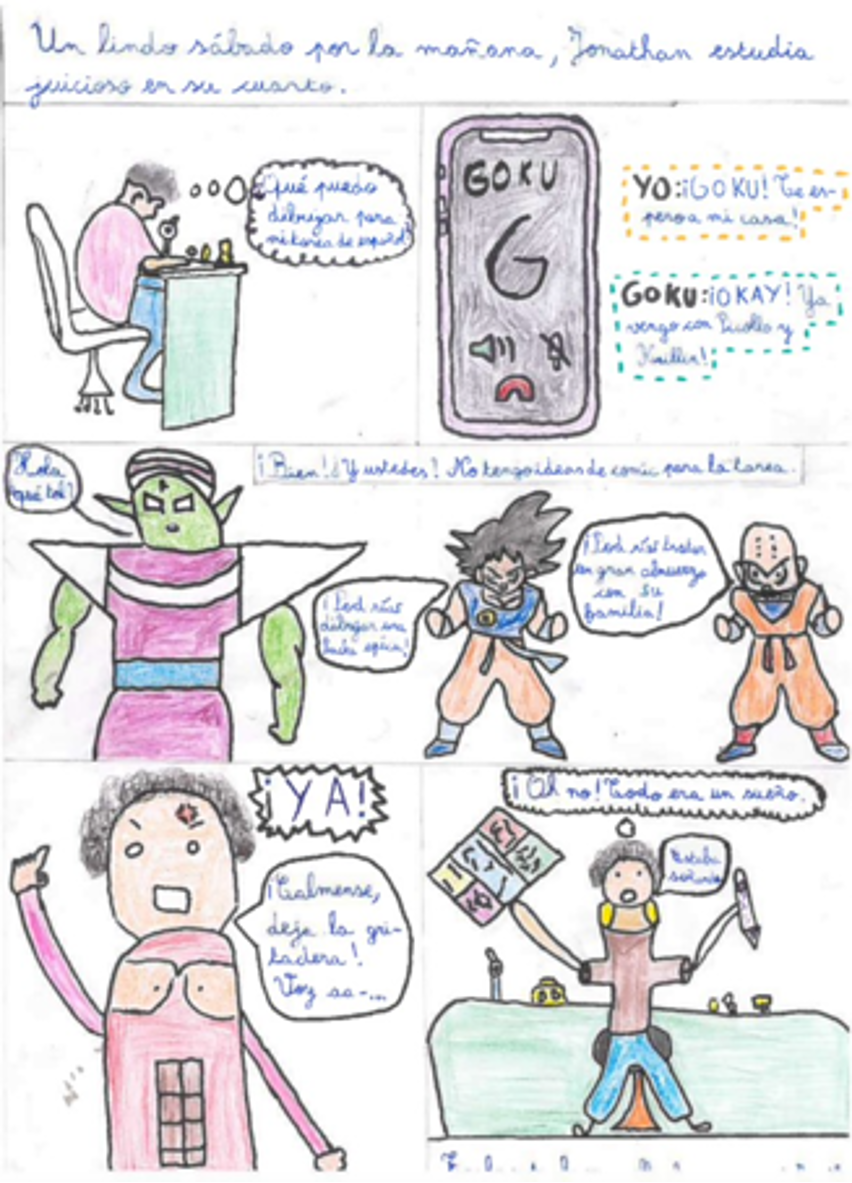 Un lindo sábado por la mañana, Jonathan estudia
juicioso en su cuarto.
¿Qué puedo
dibujar para
mi tarea de español?
GOKU
G
YO: ¡GOKU! Te es-
pero a mi casa!
GOKU: ¡OKAY! Ya
vengo con Picollo y
Krillin!
Hola
¿qué tal?
¡Bien! ¿Y ustedes? No tengo ideas de comic para la tarea.
¡Podrías
dibujar una
lucha épica!
¡Podrías
un gran almuerzo
con su
familia!
¡YA!
¡Calmense,
deja la gri-
tadera!
Voy aa-...
¡Oh no! Todo era un sueño.
Estaba
soñando